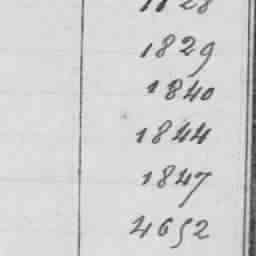 1828
1829
1840
1844
1847
4652